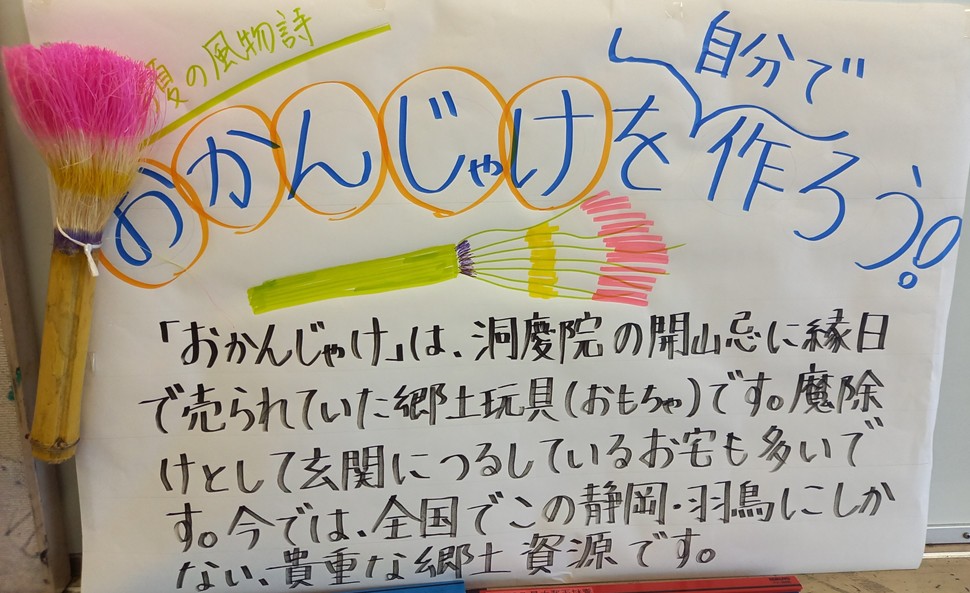 夏の風物詩
自分で
おかんじゃけを作ろう!
「おかんじゃけ」は、洞慶院の開山忌に縁日
で売られていた郷土玩具(おもちゃ)です。魔除
けとして玄関につるしているお宅も多いで
す。今では、全国でこの静岡・羽鳥にしか
ない、貴重な郷土資源です。